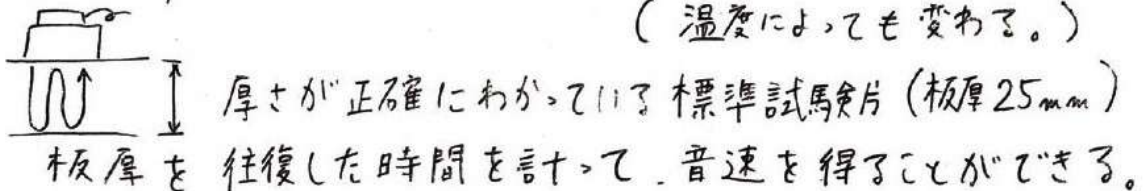 (温度によっても変わる。)
厚さが正確にわかっている標準試験片(板厚25mm)
板厚を往復した時間を計って、音速を得ることができる。